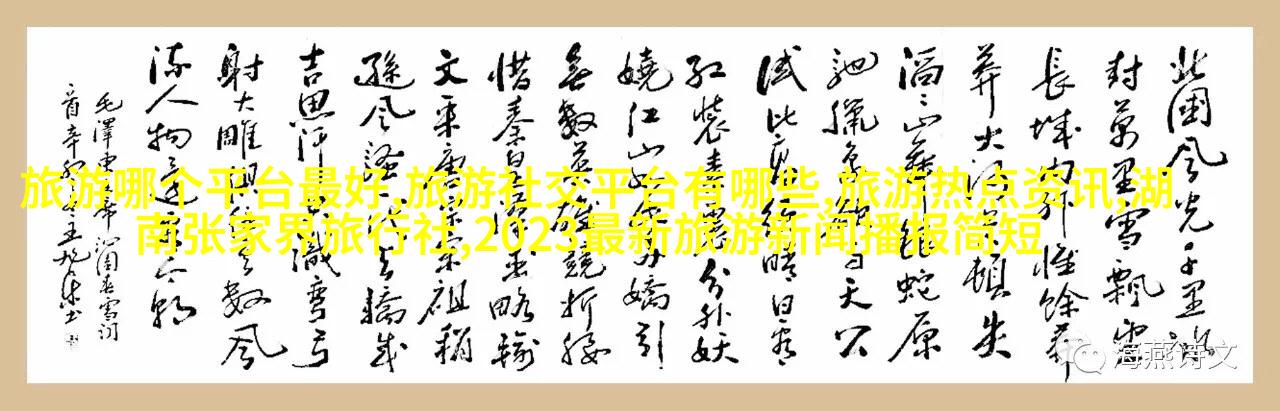 旅游哪个平台最好,旅游社交平台有哪些,旅游热点资讯,湖
南张家界旅行社,2023最新旅游新闻播报简短
北國风光千里冰
封萬里雪飘望
長城内外惟餘莽
莽大河上下頓失
滔滔山舞银蛇原
驰臘象欲与天公
试比高须晴日看
红装素裹分外妖
娆江山如此多嬌引
無数英雄競折腰
惜秦皇漢武略输
文采唐宗宋祖稍
遜风骚一代天驕成
吉思汗只識彎弓
射大雕俱往矣数风
流人物还看今朝
海燕诗文